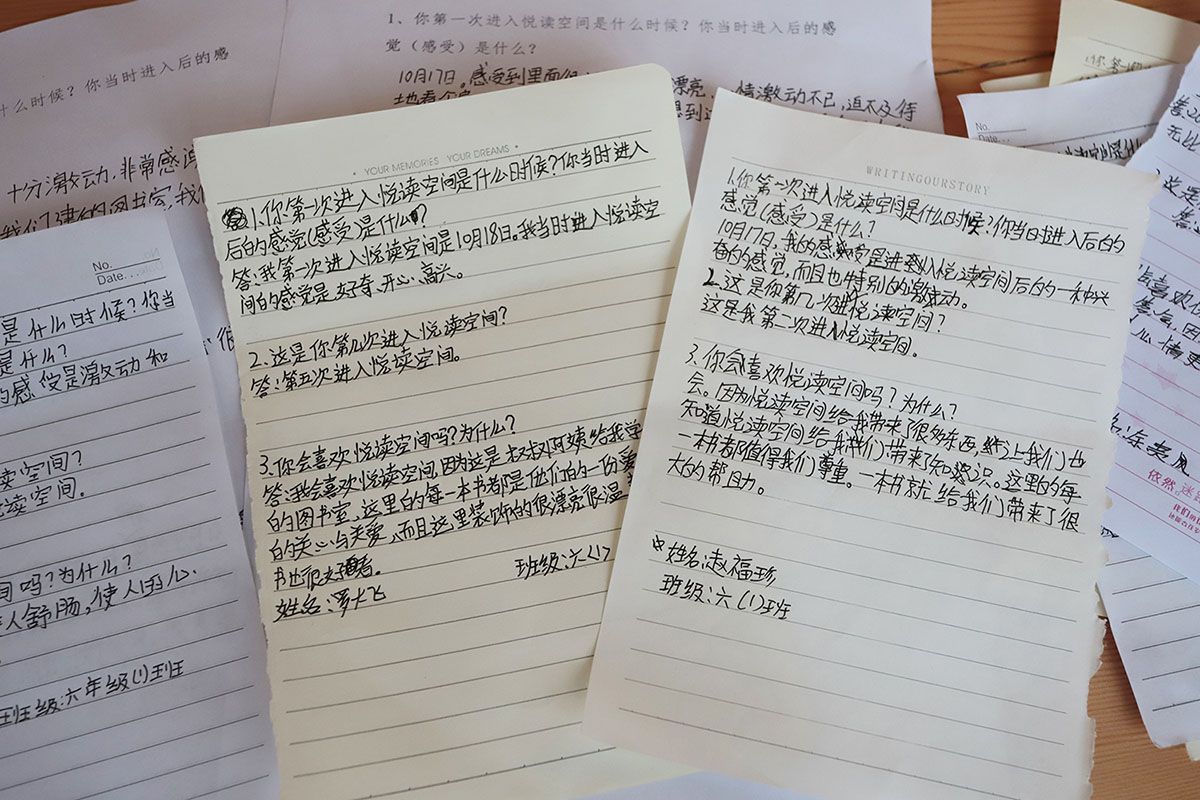 1、你第一次进入悦读空间是什么时候？你当时进入后的感
觉（感受）是什么？
10月17日。感受到里面
漂亮
情激动不已,迫不及待
什么时候？你当时进入后的感
十分激动,非常感
YOUR MEMORIES YOUR DREAMS
1.你第一次进入悦读空间是什么时候?你当时进入
后的感觉(感受)是什么?
答:我第一次进入悦读空间是10月18日。我当时进入悦读空
间的感觉是好奇、开心、高兴。
2.这是你第几次进入悦读空间?
答:第五次进入悦读空间。
3.你会喜欢悦读空间吗?为什么?
答:我会喜欢悦读空间,因为这是叔叔阿姨给我学
的图书室。这里的每一本书都是他们的一份爱
的关心与关爱、而且这里装饰的很漂亮很温
书也很好看。
班级:六(1)
姓名:罗大飞
WRITINGOURSTORY
1.你第一次进入悦读空间是什么时候?你当时进入后的
感觉(感受)是什么?
10月17日,我的感受是进入悦读空间后的一种兴
奋的感觉,而且也特别的激动。
2.这是你第几次进悦读空间?
这是我第二次进入悦读空间。
3.你会喜欢悦读空间吗?为什么?
会。因为悦读空间给我带来了很多东西,然让我们也
知道悦读空间给我们带来了知识。这里的每
一本书都值得我们尊重。一本书就给我们带来了很
大的帮助。
姓名:赵福珍
班级:六(1)班
No.
Date.
是什么时候?你当
是什么?
的感受是激动和
读空间?
读空间。
间吗?为什么?
人舒肠,使人的心
班级:六年级(1)班
No.
Date.
喜欢
依然。迷